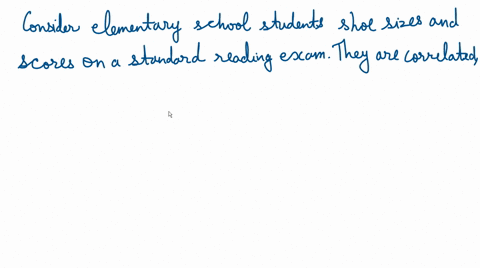 Consider elementary school students shoe sizes and
scores on a standard reading exam. They are correlated,